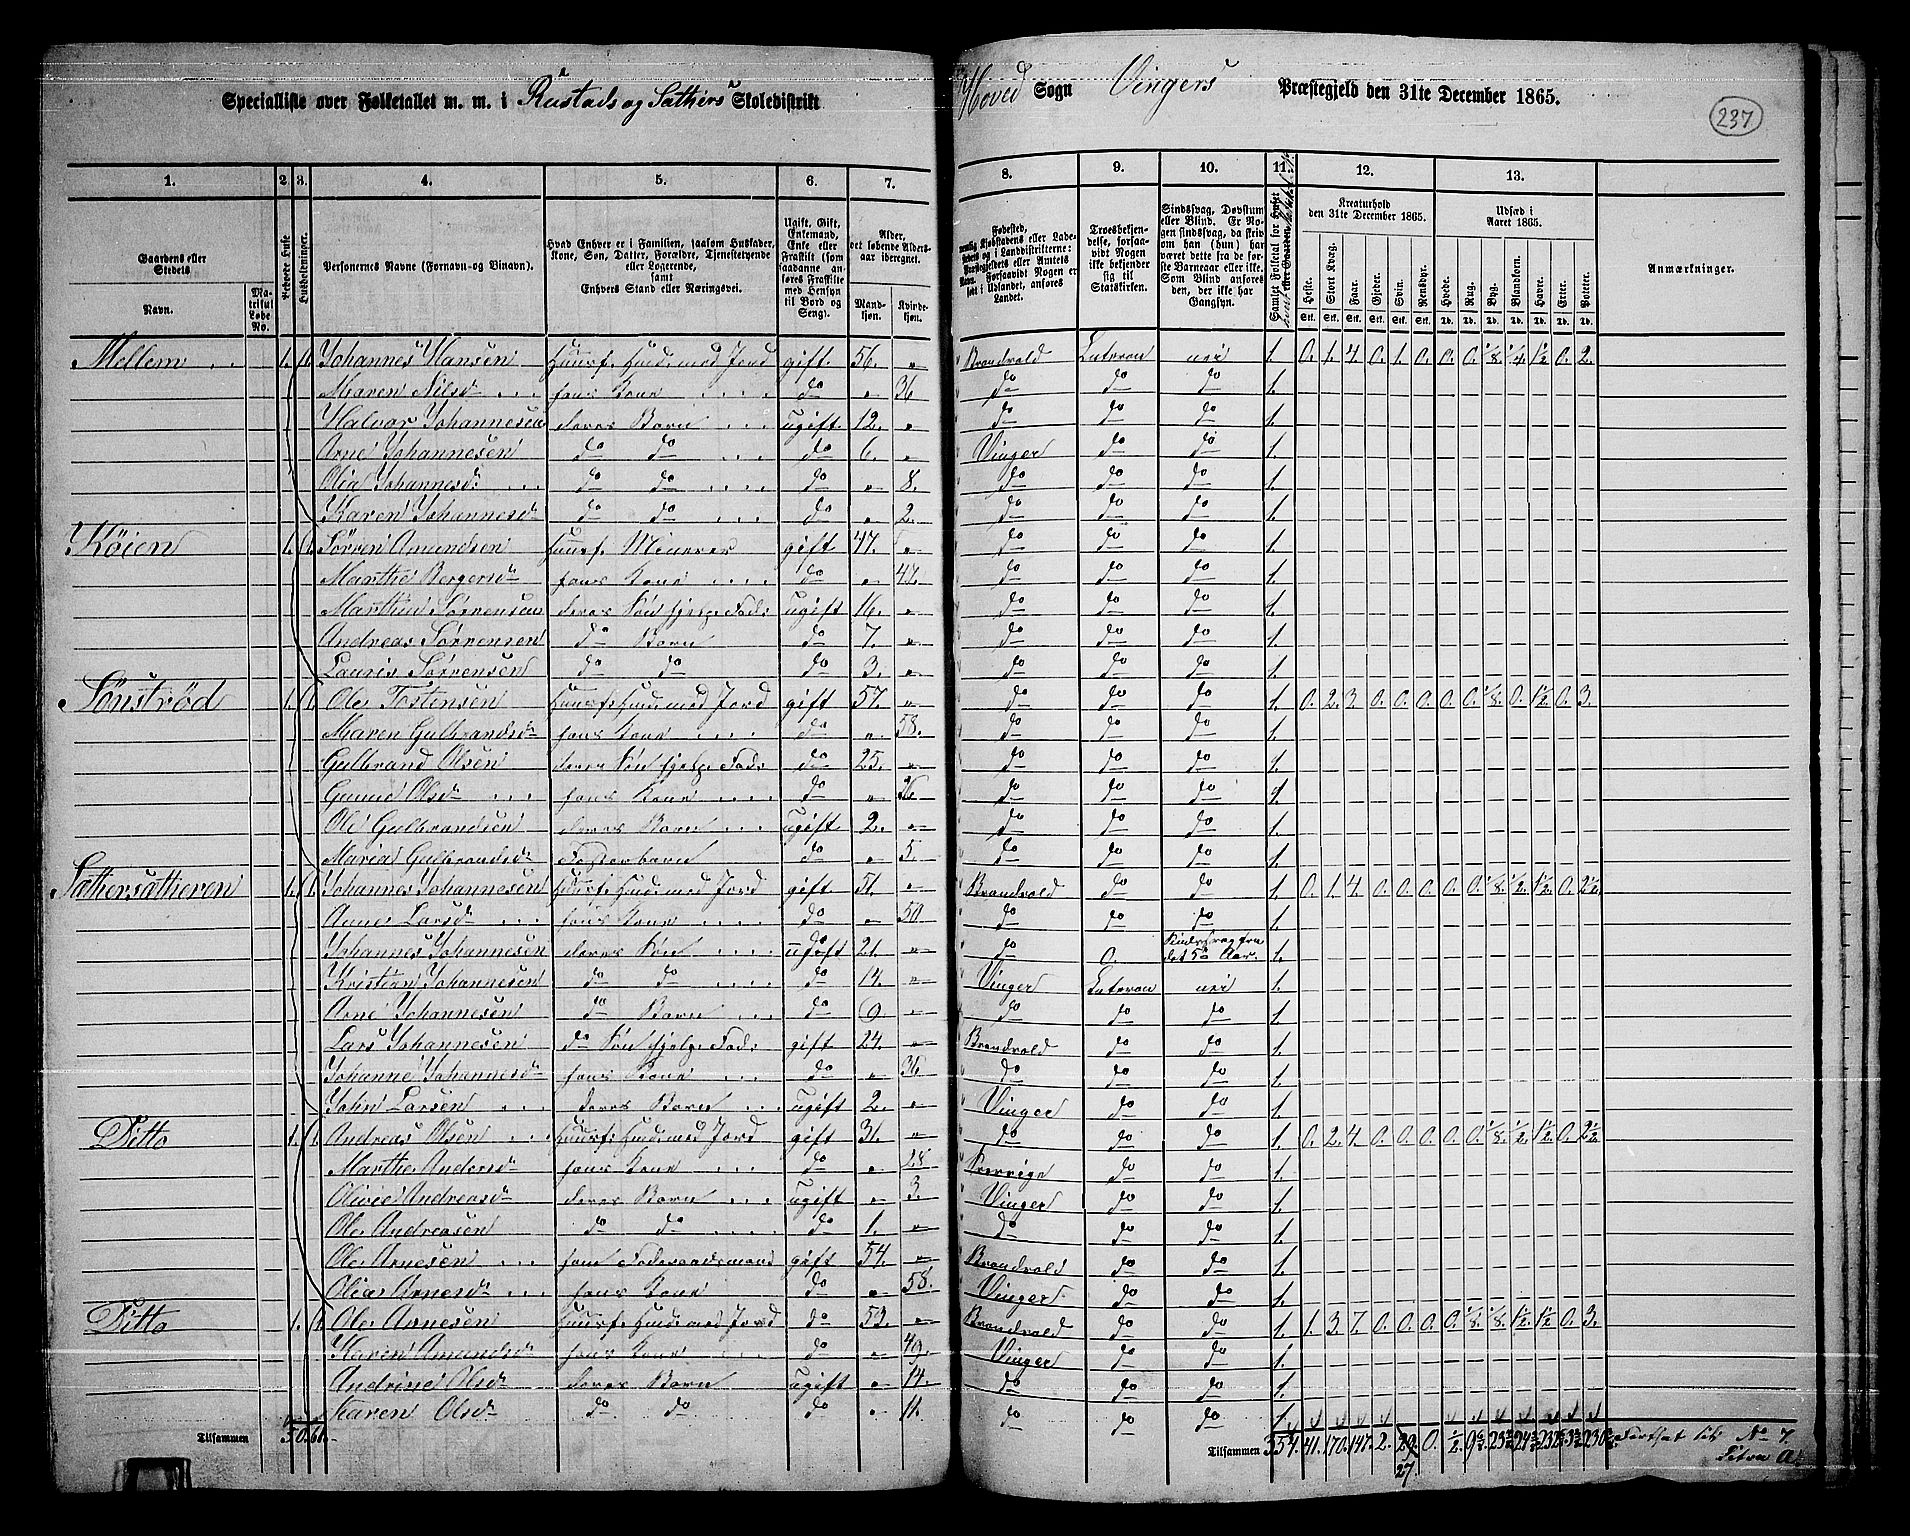 Specialliste over Folketallet m. m. i Rustads og Sæthers Skoledistrikt
Hoved Sogn Vingers Præstegjeld den 31te December 1865.
237
1. 2. 3. 4. 5. 6. 7. 8. 9. 10. 11. 12. 13.
Gaardens eller Stedets
Navn.
Matrikul Løbe No.
Beboede Huse
Husholdninger.
Personernes Navne (Fornavn og Tilnavn).
Hvad Enhver er i Familien, saasom Husfader, Kone, Søn, Datter, Forældre, Tjenestetyende eller Logerende, samt Enhvers Stand eller Næringsvei.
Ugift, Gift, Enkemand, Enke eller Fraskilt (som saadanne anføres Fraskilte med Hensyn til Bord og Seng).
Alder, det løbende Aldersaar iberegnet.
Mandkjøn. Kvindekjøn.
Troesbekjendelse, forsaavidt Nogen ikke bekjender sig til Statskirken.
Kreaturhold den 31te December 1865.
Udsæd i Aaret 1865.
Anmærkninger.
Heste. Stort Kvæg. Faar. Gjeder. Svin. Rensdyr. Hvede. Rug. Byg. Blandkorn. Havre. Erter. Poteter.
Stk. Stk. Stk. Stk. Stk. Stk. Td. Td. Td. Td. Td. Td. Td.
Mellem 1. 1. Johannes Hansen Huusf. Husm. med Jord gift 56. " Brandvold Luteran nei 1. 0. 1. 4. 0. 1. 0. 0. 0. 1/8. 1/4. 1 1/2 0. 2.
Maren Nilsd hans Kone do " 36 do do do 1.
Halvor Johannesen deres Barn ugift. 12. " do do do 1.
Arne Johannesen do do do 6. " Vinger do do 1.
Olia Johannesd. do do do " 8. do do do 1.
Karen Johannesd do do do " 2. do do do 1.
Køien 1. 1. Sørren Amundsen Huusf. Minerer gift 47. " do do do 1.
Marthe Bergersd hans Kone do " 47. do do do 1.
Martin Sørrensen deres Søn hjelp. Fad: ugift 16. " do do do 1.
Andreas Sørrensen do Barn do 7. " do do do 1.
Lauris Sørrensen do do do 3. " do do do 1.
Sønstrød 1. 1. Ole Tostensen Huusf. Husm. med Jord gift 57. " do do do 1. 0. 2. 3. 0. 0. 0. 0. 0. 1/8. 0. 1 1/2 0. 3.
Maren Gulbrandsd hans Kone do " 58. do do do 1.
Gulbrand Olsen deres Søn hjelp. Fad: do 25. " do do do 1.
Gunild Olsd hans Kone do " 26 do do do 1.
Ole Gulbrandsen deres Barn ugift 2. " do do do 1.
Maria Gulbrandsd Fosterbarn do " 5. do do do 1.
Sæthersætheren 1. 1. Johannes Johannesen Huusf. Husm. med Jord gift 51. " Brandvold do do 1. 0. 1. 4. 0. 0. 0. 0. 0. 1/8. 1/2. 1 1/2. 0. 2 1/2.
Anne Larsd hans Kone do " 50 do do do 1.
Johannes Johannesen deres Søn ugift 21. " do 0. Sindssvag fra det 5te Aar. 1.
Kristian Johannesen do do do 14. " Vinger Luteran nei 1.
Arne Johannesen do Barn do 9. " do do do 1.
Lars Johannesen do Søn hjelp. Fad: gift 24. " Brandvold do do 1.
Johanne Johannesd hans Kone do " 36 do do do 1.
John Larsen deres Barn ugift 2. " Vinger do do 1.
Ditto 1. 1. Andreas Olsen Huusf. Husm. med Jord gift 31. " do do do 1. 0. 2. 4. 0. 0. 0. 0. 0. 1/8. 1/2. 1 1/2. 0. 2 1/2.
Marthe Andersd hans Kone do " 28 Sverrige do do 1.
Olivie Andreasd deres Barn ugift " 3. Vinger do do 1.
Ole Andreasen do do do 1. " do do do 1.
Ole Arnesen hans Føderaadsmand gift 54. " Brandvold do do 1.
Olia Arnesd hans Kone do " 58. Vinger do do 1.
Ditto 1. 1. Ole Arnesen Huusf. Husm. med Jord do 53. " Brandvold do do 1. 1. 3. 7. 0. 0. 0. 0. 1/8. 1/8. 1/2. 1 1/2 0. 3.
Karen Amundsd hans Kone do " 49. Vinger do do 1.
Andrine Olsd deres Barn ugift " 14. do do do 1.
Karen Olsd do do do " 11. do do do 1.
Tilsammen 50. 61.
Tilsammen 354. 41. 170. 147. 2. 29. 0. 1/2
27.
Fortsat til No 7.
Litra A.